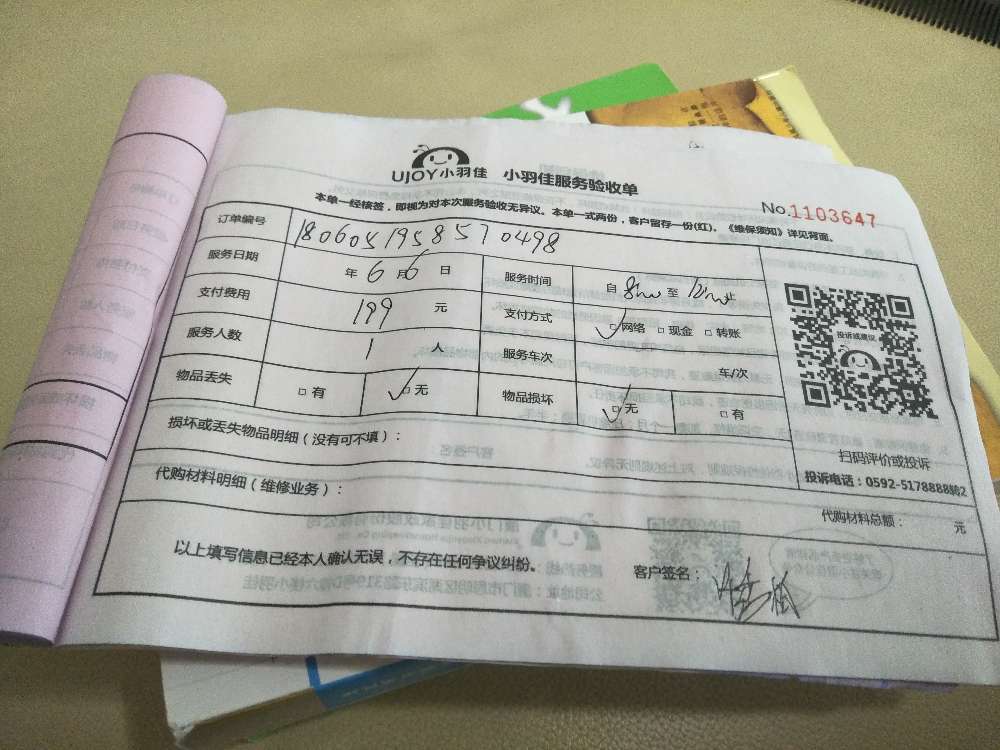 UJOY小羽佳 小羽佳服务验收单
No.1103647
本单一经核签，即视为对本次服务验收无异议。本单一式两份，客户留存一份(红)。《维保须知》详见背面。
订单编号 1806051958570498
服务日期 年 6 月 6 日 服务时间 自 至 止
支付费用 199 元 支付方式 网络 现金 转账
服务人数 1 人 服务车次 车/次
物品丢失 有 无 物品损坏 无 有
投诉或建议
扫码评价或投诉
投诉电话：0592-5178888转2
损坏或丢失物品明细（没有可不填）：
代购材料明细（维修业务）：
代购材料总额： 元
以上填写信息已经本人确认无误，不存在任何争议纠纷。
客户签名：